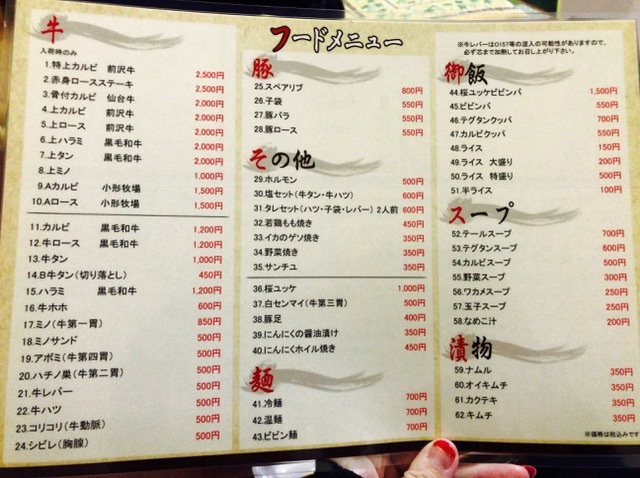 フードメニュー
牛
入荷時のみ
1.特上カルビ 前沢牛 2,500円
2.赤身ロースステーキ 2,500円
3.骨付カルビ 仙台牛 2,000円
4.上カルビ 前沢牛 2,000円
5.上ロース 前沢牛 2,000円
6.上ハラミ 黒毛和牛 2,000円
7.上タン 黒毛和牛 2,000円
8.上ミノ 1,000円
9.Aカルビ 小形牧場 1,500円
10.Aロース 小形牧場 1,500円
11.カルビ 黒毛和牛 1,200円
12.牛ロース 黒毛和牛 1,200円
13.牛タン 1,000円
14.B牛タン(切り落とし) 450円
15.ハラミ 黒毛和牛 1,200円
16.牛ホホ 600円
17.ミノ(牛第一胃) 850円
18.ミノサンド 500円
19.アボミ(牛第四胃) 500円
20.ハチノ巣(牛第二胃) 500円
21.牛レバー 500円
22.牛ハツ 500円
23.コリコリ(牛動脈) 500円
24.シビレ(胸腺) 500円
豚
25.スペアリブ 800円
26.子袋 550円
27.豚バラ 550円
28.豚ロース 550円
その他
29.ホルモン 500円
30.塩セット(牛タン・牛ハツ) 600円
31.タレセット(ハツ・子袋・レバー) 2人前 600円
32.若鶏もも焼き 450円
33.イカのゲソ焼き 350円
34.野菜焼き 350円
35.サンチュ 350円
36.桜ユッケ 1,000円
37.白センマイ(牛第三胃) 500円
38.豚足 400円
39.にんにくの醤油漬け 350円
40.にんにくホイル焼き 450円
麺
41.冷麺 700円
42.温麺 700円
43.ビビン麺 700円
※牛レバーはO157等の混入の可能性がありますので、
必ず芯まで加熱してお召し上がり下さい。
御飯
44.桜ユッケビビンバ 1,500円
45.ビビンバ 550円
46.テグタンクッパ 700円
47.カルビクッパ 550円
48.ライス 150円
49.ライス 大盛り 200円
50.ライス 特盛り 500円
51.半ライス 100円
スープ
52.テールスープ 700円
53.テグタンスープ 600円
54.カルビスープ 500円
55.野菜スープ 300円
56.ワカメスープ 250円
57.玉子スープ 250円
58.なめこ汁 200円
漬物
59.ナムル 350円
60.オイキムチ 350円
61.カクテキ 350円
62.キムチ 350円
※価格は税込みです